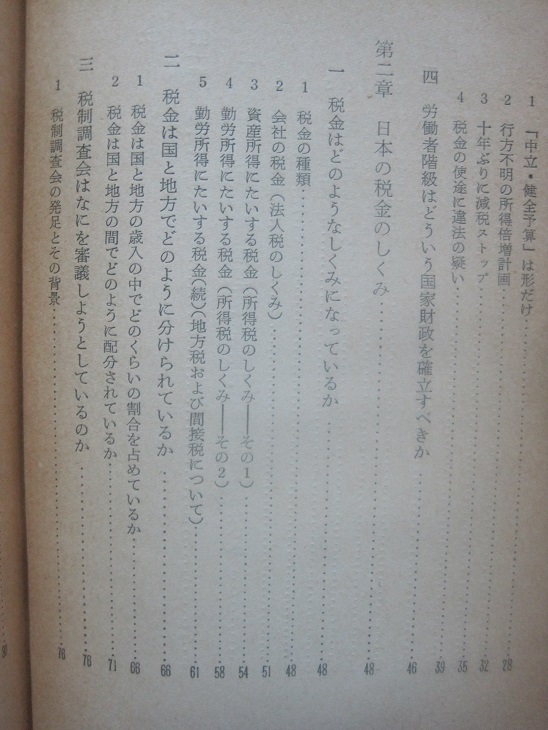 1 「中立・健全予算」は形だけ……28
2 行方不明の所得倍増計画……32
3 十年ぶりに減税ストップ……35
4 税金の使途に違法の疑い……39
四 労働者階級はどういう国家財政を確立すべきか……46
第二章 日本の税金のしくみ……48
一 税金はどのようなしくみになっているか……48
1 税金の種類……48
2 会社の税金（法人税のしくみ）……51
3 資産所得にたいする税金（所得税のしくみ――その1）……54
4 勤労所得にたいする税金（所得税のしくみ――その2）……58
5 勤労所得にたいする税金（続）（地方税および間接税について）……61
二 税金は国と地方でどのように分けられているか……66
1 税金は国と地方の歳入の中でどのくらいの割合を占めているか……66
2 税金は国と地方の間でどのように配分されているか……71
三 税制調査会はなにを審議しようとしているのか……78
1 税制調査会の発足とその背景……78